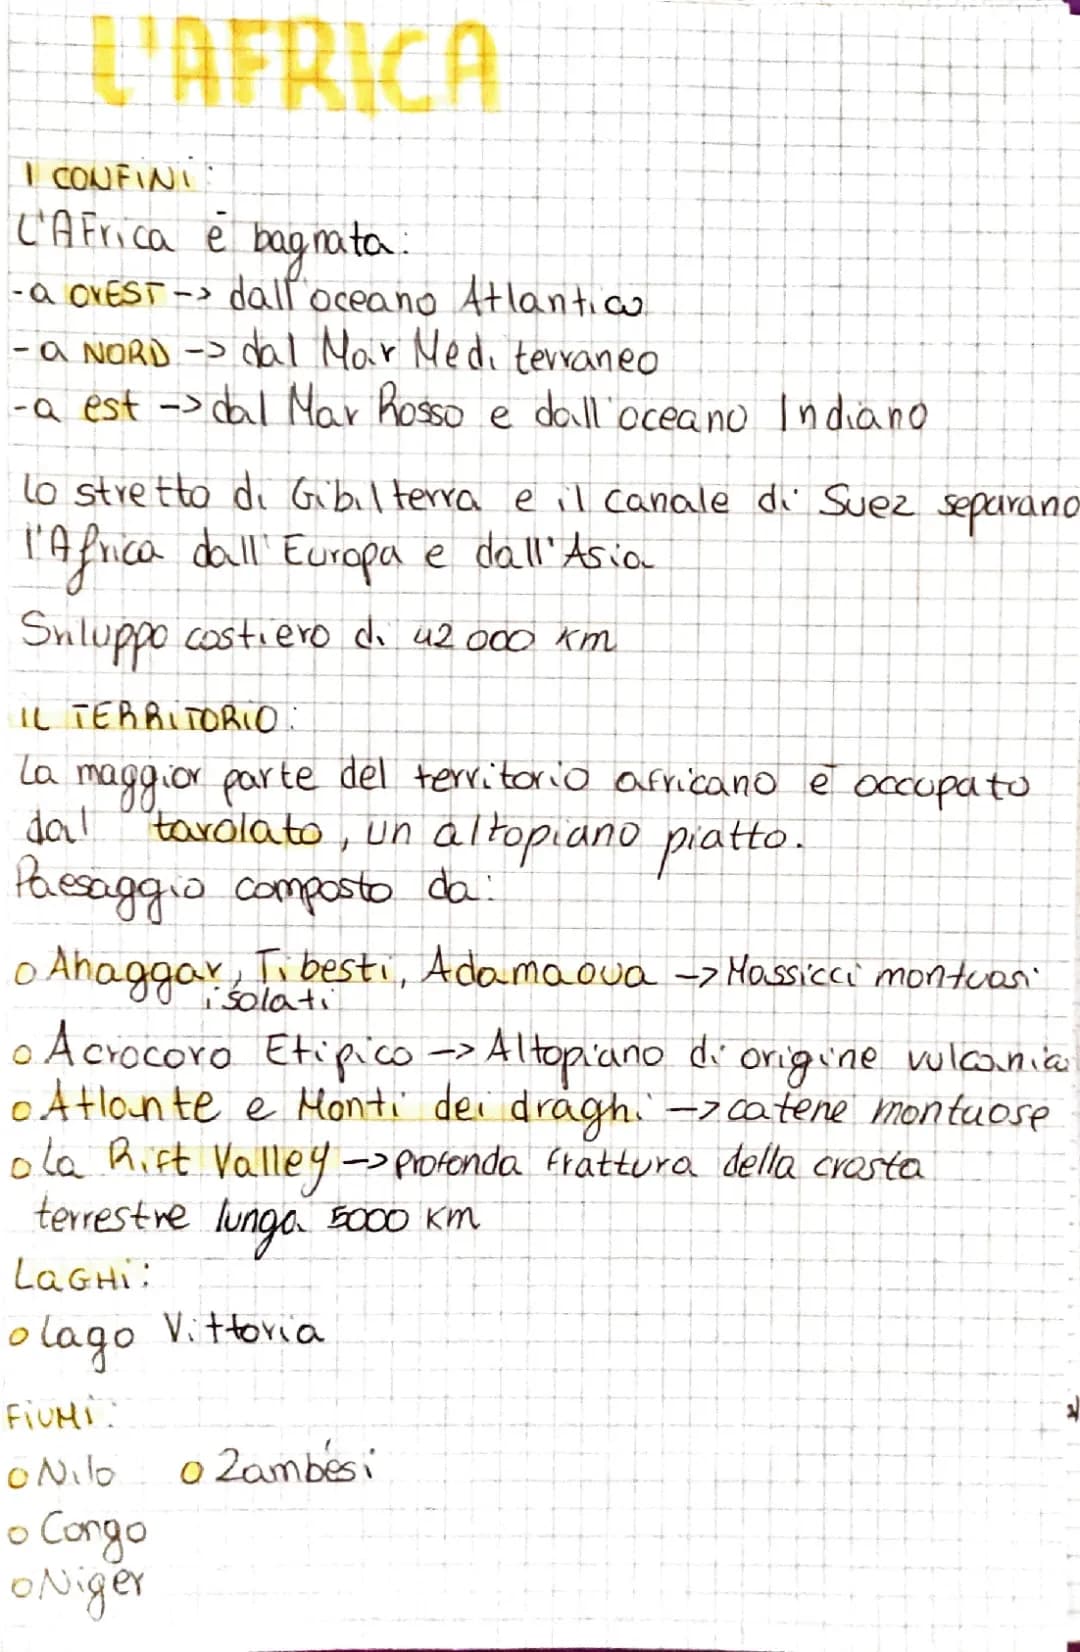 L'AFRICA
I CONFINI:
L'AFrica è bagnata:
-a OVEST -> dall'oceano Atlantico
-a NORD -> dal Mar Mediterraneo
-a est -> dal Mar Rosso e dall'oceano Indiano
lo stretto di Gibilterra e il canale di Suez separano
l'Africa dall'Europa e dall'Asia
Sviluppo costiero di 42 000 km
IL TERRITORIO:
La maggior parte del territorio africano è occupato
dal tavolato, un altopiano piatto.
Paesaggio composto da:
o Ahaggar, Tibesti, Adamaoua -> Massicci montuosi
isolati
o Acrocoro Etipico -> Altopiano di origine vulcanica
o Atlante e Monti dei draghi -> catene montuose
o la Rift Valley -> profonda frattura della crosta
terrestre lunga 5000 km
LAGHI:
o lago Vittoria
FIUMI:
o Nilo o Zambési
o Congo
o Niger